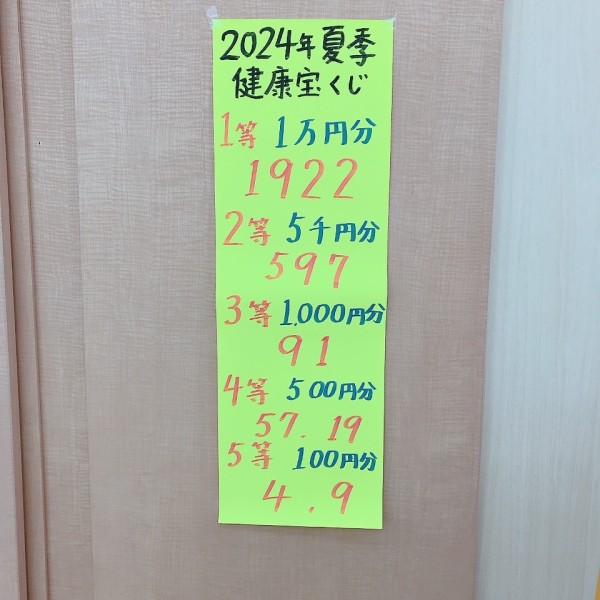 2024年夏季
健康宝くじ
1等 1万円分
1922
2等 5千円分
597
3等 1,000円分
91
4等 500円分
57.19
5等 100円分
4.9